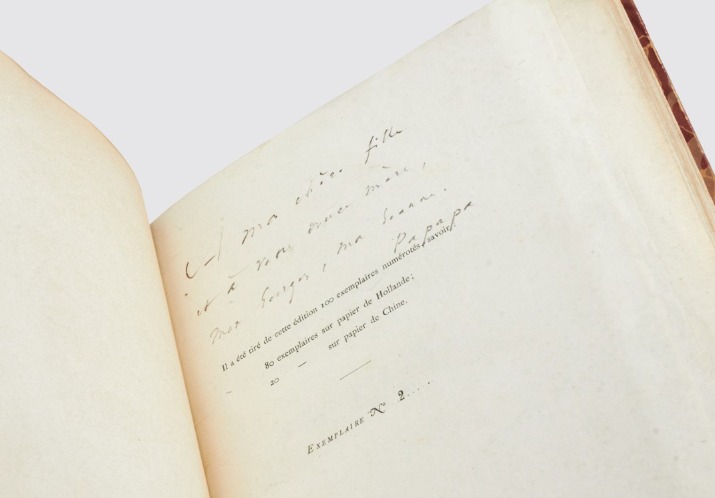 A ma chère fille
et à vous deux
mon Georges, ma Jeanne.
Papapa
Il a été tiré de cette édition 100 exemplaires numérotés, savoir:
80 exemplaires sur papier de Hollande;
20 — sur papier de Chine.
EXEMPLAIRE Nº 2....